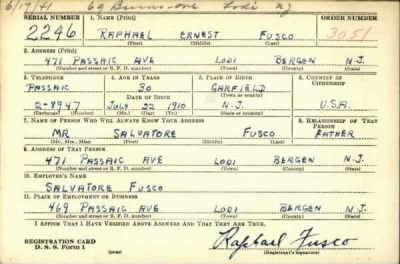 6/17/41 69 Burns ave Lodi NJ
SERIAL NUMBER 1. NAME (Print) ORDER NUMBER
2246 RAPHAEL ERNEST FUSCO 3051
(First) (Middle) (Last)
2. ADDRESS (Print)
471 PASSAIC AVE LODI BERGEN N.J.
(Number and street or R. F. D. number) (Town) (County) (State)
3. TELEPHONE 4. AGE IN YEARS 5. PLACE OF BIRTH 6. COUNTRY OF CITIZENSHIP
PASSAIC 30 GARFIELD
DATE OF BIRTH (Town or county)
2-8947 JULY 22 1910 N.J. U.S.A.
(Mo.) (Day) (Yr.) (State or country)
7. NAME OF PERSON WHO WILL ALWAYS KNOW YOUR ADDRESS 8. RELATIONSHIP OF THAT PERSON
MR SALVATORE FUSCO FATHER
(Mr., Mrs., Miss) (First) (Middle) (Last)
9. ADDRESS OF THAT PERSON
471 PASSAIC AVE LODI BERGEN N.J.
(Number and street or R. F. D. number) (Town) (County) (State)
10. EMPLOYER'S NAME
SALVATORE FUSCO
11. PLACE OF EMPLOYMENT OR BUSINESS
469 PASSAIC AVE LODI BERGEN N.J.
(Number and street or R. F. D. number) (Town) (County) (State)
I AFFIRM THAT I HAVE VERIFIED ABOVE ANSWERS AND THAT THEY ARE TRUE.
REGISTRATION CARD
D. S. S. Form 1 (over) Raphael Fusco
(Registrant's signature)